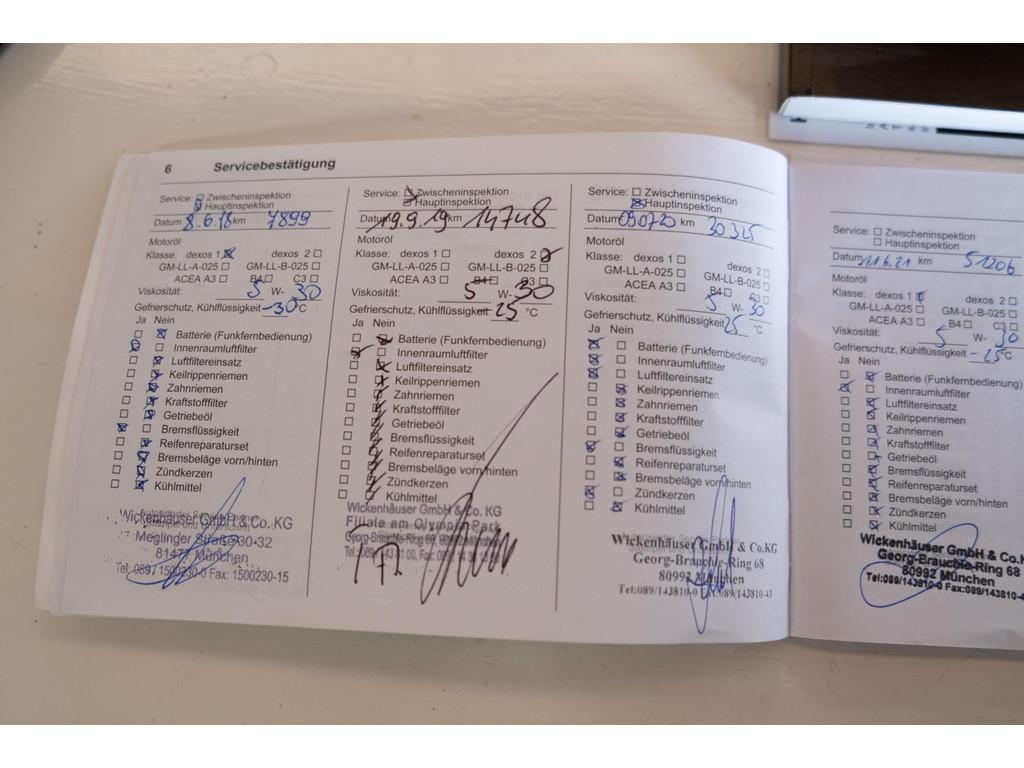 6 Servicebestätigung
Service: Zwischeninspektion
Hauptinspektion
Datum 8.6.18 km 7899
Motoröl
Klasse: dexos 1 dexos 2
GM-LL-A-025 GM-LL-B-025
ACEA A3 B4 C3
Viskosität: 5 W- 30
Gefrierschutz, Kühlflüssigkeit -30 °C
Ja Nein
Batterie (Funkfernbedienung)
Innenraumluftfilter
Luftfiltereinsatz
Keilrippenriemen
Zahnriemen
Kraftstofffilter
Getriebeöl
Bremsflüssigkeit
Reifenreparaturset
Bremsbeläge vorn/hinten
Zündkerzen
Kühlmittel
Wickenhäuser GmbH & Co. KG
Meglinger Straße 30-32
München
Tel: 089/ 1500230-0 Fax: 1500230-15
Service: Zwischeninspektion
Hauptinspektion
Datum 19.9.19 km 14748
Motoröl
Klasse: dexos 1 dexos 2
GM-LL-A-025 GM-LL-B-025
ACEA A3 B4 C3
Viskosität: 5 W- 30
Gefrierschutz, Kühlflüssigkeit -25 °C
Ja Nein
Batterie (Funkfernbedienung)
Innenraumluftfilter
Luftfiltereinsatz
Keilrippenriemen
Zahnriemen
Kraftstofffilter
Getriebeöl
Bremsflüssigkeit
Reifenreparaturset
Bremsbeläge vorn/hinten
Zündkerzen
Kühlmittel
Wickenhäuser GmbH & Co. KG
Filiale am OlympiaPark
Georg-Brauchle-Ring
Service: Zwischeninspektion
Hauptinspektion
Datum km 30325
Motoröl
Klasse: dexos 1 dexos 2
GM-LL-A-025 GM-LL-B-025
ACEA A3 B4 C3
Viskosität: 5 W- 30
Gefrierschutz, Kühlflüssigkeit 25 °C
Ja Nein
Batterie (Funkfernbedienung)
Innenraumluftfilter
Luftfiltereinsatz
Keilrippenriemen
Zahnriemen
Kraftstofffilter
Getriebeöl
Bremsflüssigkeit
Reifenreparaturset
Bremsbeläge vorn/hinten
Zündkerzen
Kühlmittel
Wickenhäuser GmbH & Co.KG
Georg-Brauchle-Ring 68
80992 München
Tel:089/143810-0 Fax:089/143810-43
Service: Zwischeninspektion
Hauptinspektion
Datum 11.6.21 km 51206
Motoröl
Klasse: dexos 1 dexos 2
GM-LL-A-025 GM-LL-B-025
ACEA A3 B4 C3
Viskosität: 5 W- 30
Gefrierschutz, Kühlflüssigkeit -25 °C
Ja Nein
Batterie (Funkfernbedienung)
Innenraumluftfilter
Luftfiltereinsatz
Keilrippenriemen
Zahnriemen
Kraftstofffilter
Getriebeöl
Bremsflüssigkeit
Reifenreparaturset
Bremsbeläge vorn/hinten
Zündkerzen
Kühlmittel
Wickenhäuser GmbH & Co.
Georg-Brauchle-Ring 68
80992 München
Tel:089/143810-0 Fax:089/143810-4